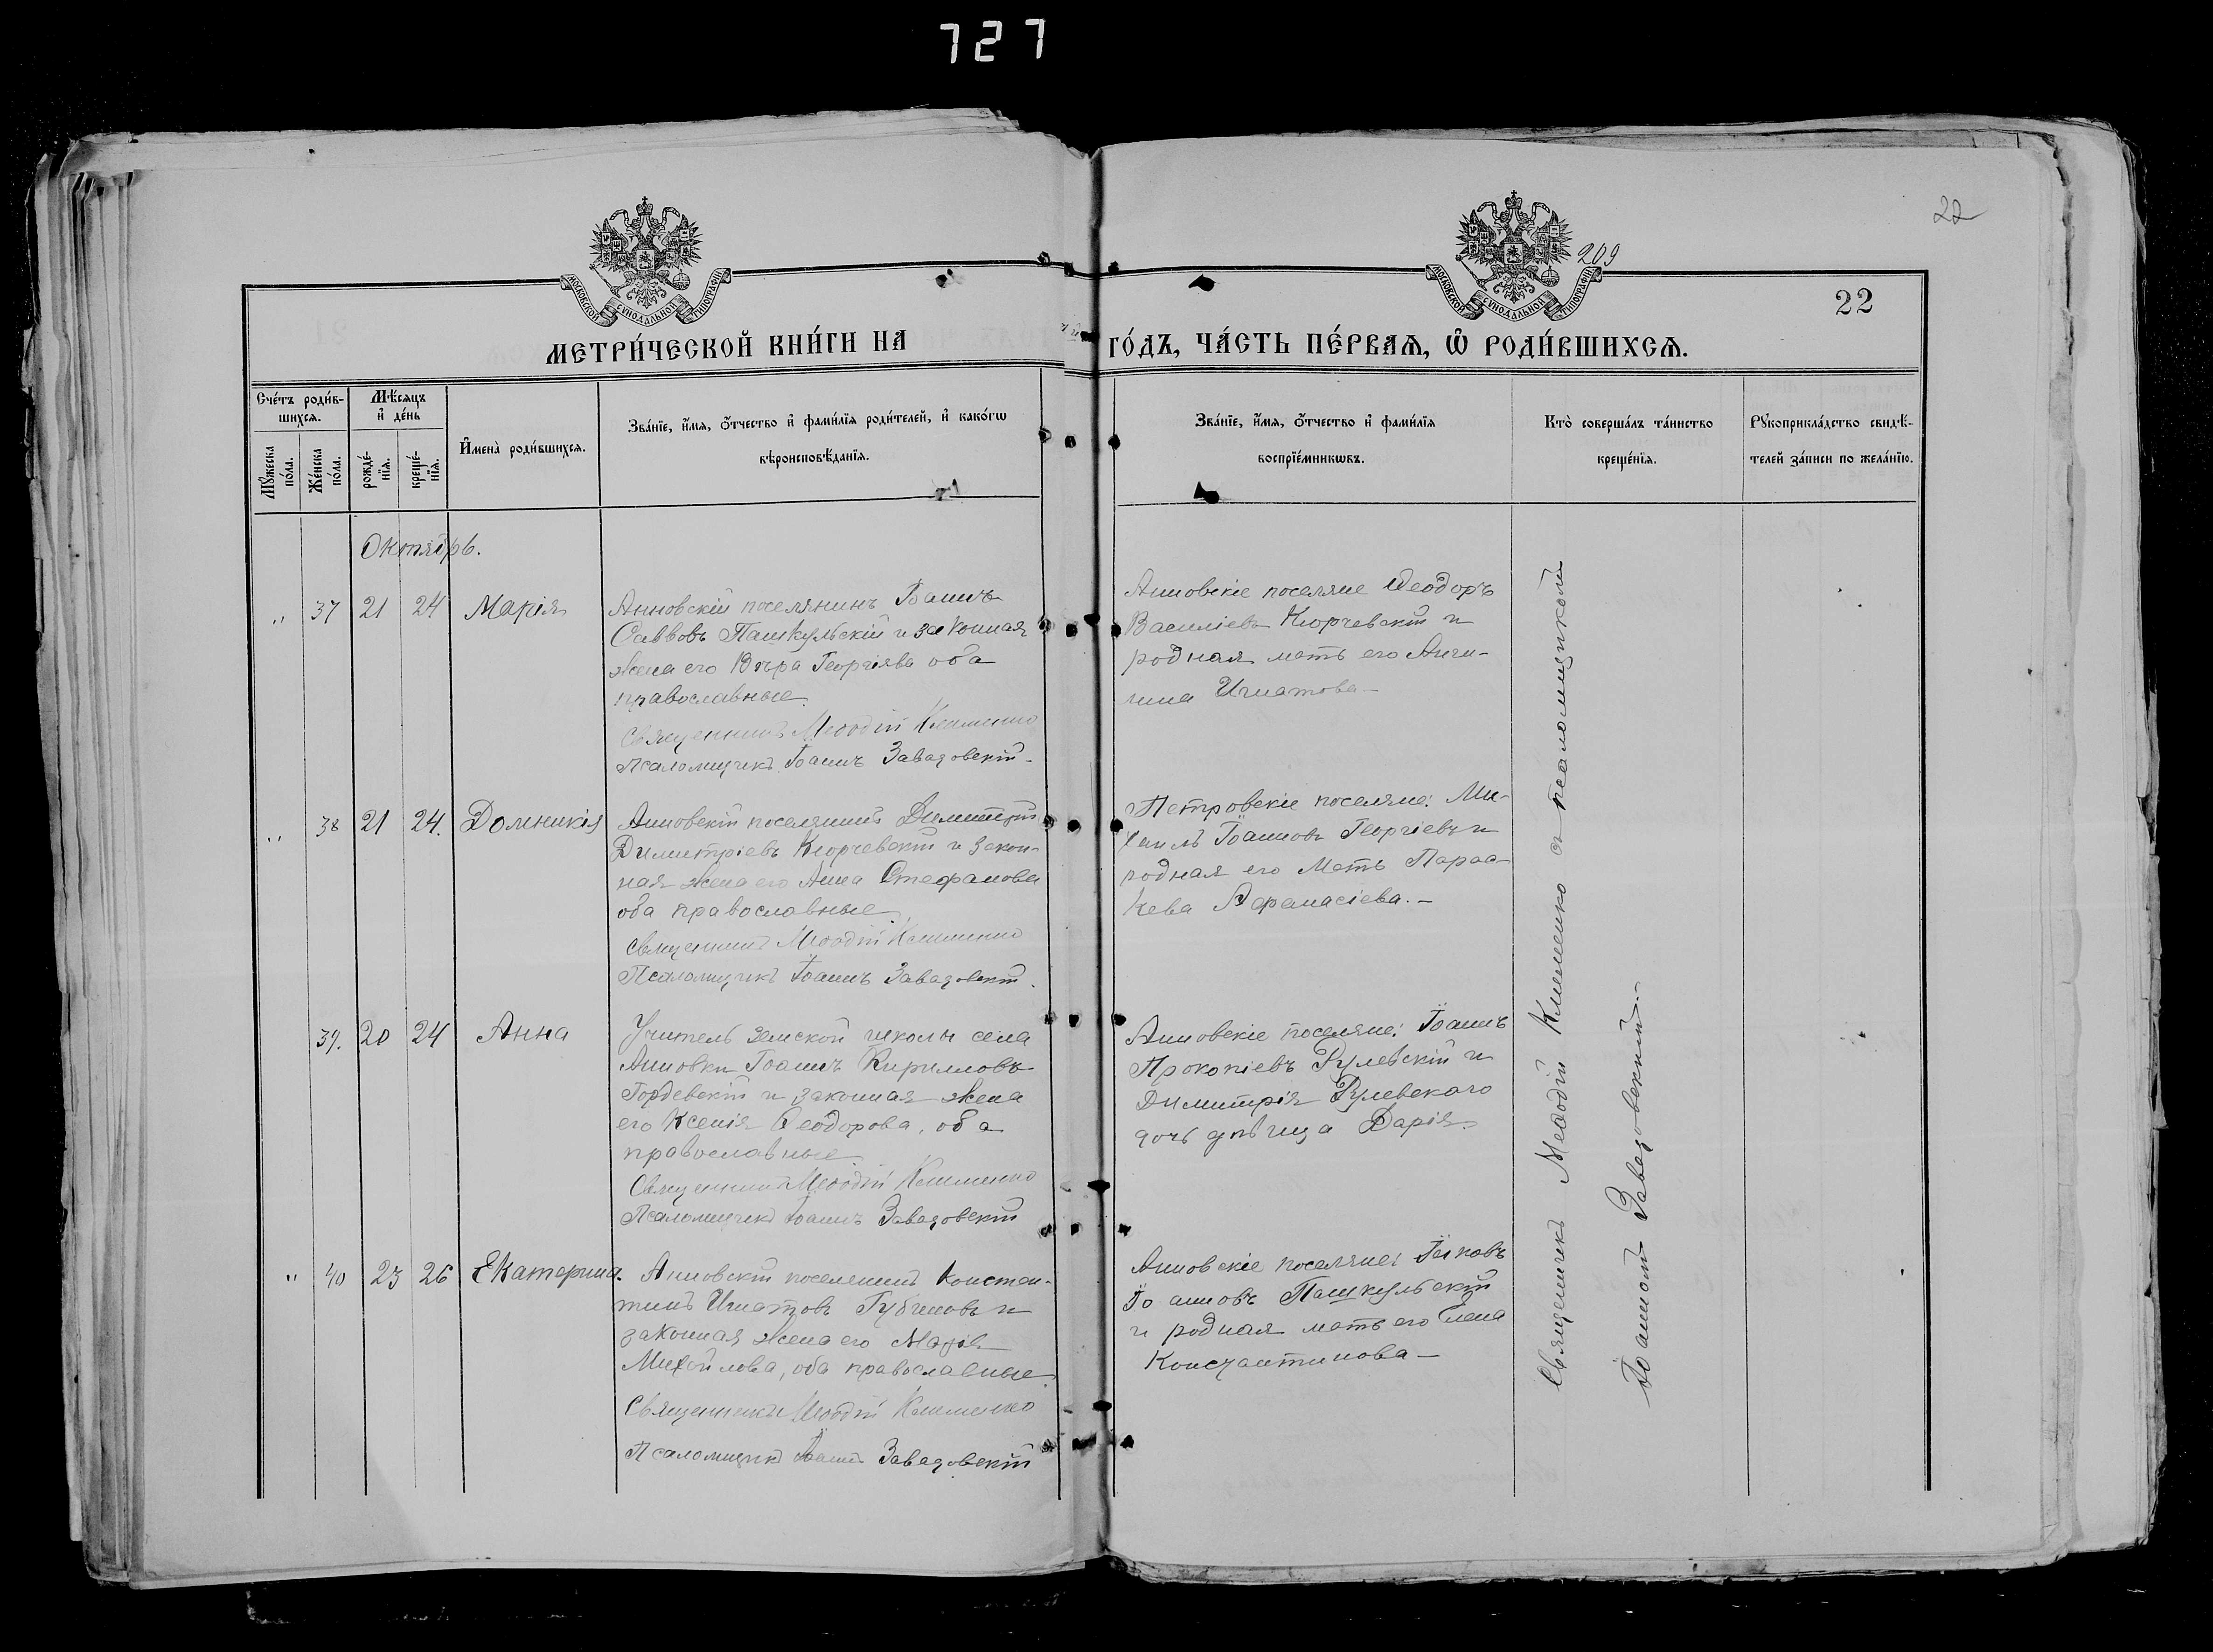 727
22
209
22
МОСКОВСКОЙ СУНОДАЛЬНОЙ ТИПОГРАФІИ
МОСКОВСКОЙ СУНОДАЛЬНОЙ ТИПОГРАФІИ
МЕТРИ́ЧЕСКОЙ КНИ́ГИ НА
ГО́ДЪ, ЧА́СТЬ ПЕ́РВАѦ, Ѡ҆ РОДИ́ВШИХСѦ.
Сче́тъ роди́в-
шихсѧ.
Мѣ́сѧцъ
и҆ де́нь
Мꙋ́жеска
по́ла.
Же́нска
по́ла.
рожде́-
нїѧ.
креще́-
нїѧ.
И҆мена̀ роди́вшихсѧ.
Зва́нїе, и҆́мѧ, ѻ҆́тчество и҆ фами́лїѧ роди́телей, и҆ како́гѡ
вѣроисповѣ́данїѧ.
Зва́нїе, и҆́мѧ, ѻ҆́тчество и҆ фами́лїѧ
воспрїе́мникѡвъ.
Кто̀ соверша́лъ та́инство
креще́нїѧ.
Рꙋкоприкла́дство свидѣ́-
телей за́писи по жела́нїю.
Октябрь.
" 37 21 24 Марія
Анновскій поселянинъ Іоаннъ
Саввовъ Пашкульскій и законная
жена его Вѣра Георгіева оба
православные.
Священникъ Меѳодій Клименко
Псаломщикъ Іоаннъ Завадовскій.
Анновскіе поселяне Ѳеодоръ
Василіевъ Кюрчевскій и
родная мать его Анге-
лина Игнатова —
" 38 21 24. Домникія
Анновскій поселянинъ Димитрій
Димитріевъ Кюрчевскій и закон-
ная жена его Анна Стефанова
оба православные.
Священникъ Меѳодій Клименко
Псаломщикъ Іоаннъ Завадовскій.
Петровскіе поселяне: Ми-
хаилъ Іоанновъ Георгіевъ и
родная его мать Парас-
кева Афанасіева. —
39. 20 24 Анна
Учитель земской школы села
Анновки Іоаннъ Кирилловъ
Гордевскій и законная жена
его Ксенія Ѳеодорова, оба
православные
Священникъ Меѳодій Клименко
Псаломщикъ Іоаннъ Завадовскій
Анновскіе поселяне: Іоаннъ
Прокопіевъ Рулевскій и
Димитрія Рулевскаго
дочь дѣвица Дарія.
" 40 23 26 Екатерина.
Анновскій поселянинъ Констан-
тинъ Игнатовъ Губиновъ и
законная жена его Марія
Михайлова, оба православные.
Священникъ Меѳодій Клименко
Псаломщикъ Іоаннъ Завадовскій
Анновскіе поселяне: Іаковъ
Іоанновъ Пашкульскій
и родная мать его Елена
Константинова —
Священникъ Меѳодій Клименко съ псаломщикомъ
Іоанномъ Завадовскимъ. —